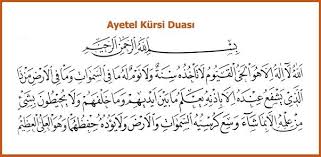 Ayetel Kürsi Duası
بِسْمِ اللهِ الرَّحْمٰنِ الرَّحِيمِ
اَللهُ لَا اِلٰهَ اِلَّا هُوَ الْحَيُّ الْقَيُّومُ لَا تَأْخُذُهُ سِنَةٌ وَلَا نَوْمٌ لَهُ مَا فِي السَّمٰوَاتِ وَمَا فِي الْاَرْضِ مَنْ ذَا
الَّذِي يَشْفَعُ عِنْدَهُ اِلَّا بِاِذْنِهِ يَعْلَمُ مَا بَيْنَ اَيْدِيهِمْ وَمَا خَلْفَهُمْ وَلَا يُحِيطُونَ بِشَيْءٍ
مِنْ عِلْمِهِ اِلَّا بِمَا شَاءَ وَسِعَ كُرْسِيُّهُ السَّمٰوَاتِ وَالْاَرْضَ وَلَا يَؤُدُهُ حِفْظُهُمَا وَهُوَ الْعَلِيُّ الْعَظِيمُ